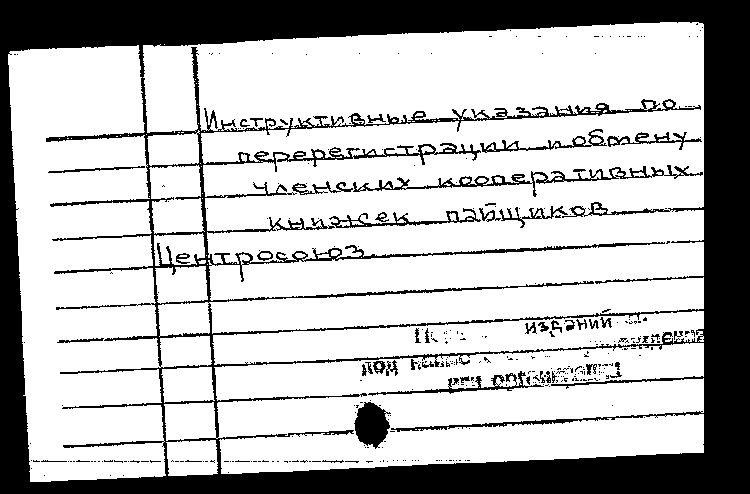 Инструктивные указания по
перерегистрации и обмену
членских кооперативных
книжек пайщиков
Центросоюз.
изданий
под